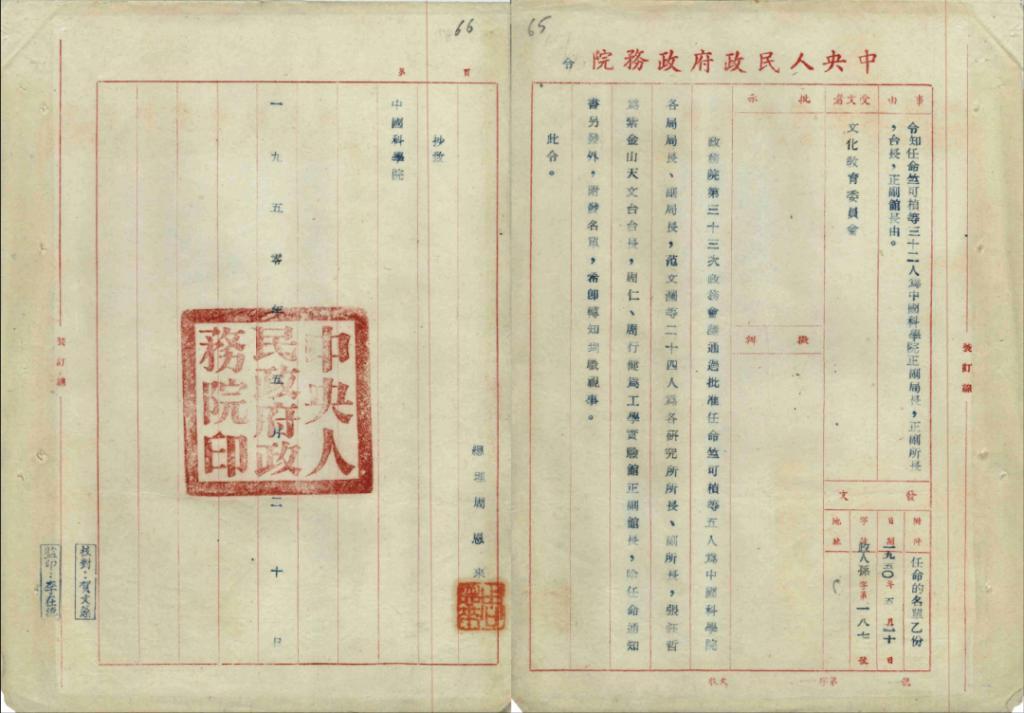 65
中央人民政府政務院 令
事由
令知任命竺可楨等三十二人為中國科學院正副局長,正副所長
,台長,正副館長由。
受文者
文化教育委員會
批示
擬辦
發文
附件
任命的名單乙份
日期
一九五〇年五月二十日
字號
政人保字第一八七號
地址
政務院第三十三次政務會議通過批准任命竺可楨等五人為中國科學院
各局局長、副局長,范文瀾等二十四人為各研究所所長、副所長,張鈺哲
為紫金山天文台台長,周仁、周行健為工學實驗館正副館長,除任命通知
書另發外,附發名單,希即轉知到職視事。
此令。
裝訂線
收文 字第 號
66
第 頁
總理周恩來
抄致
中國科學院
一九五零年五月二十日
中央人
民政府政
務院印
裝訂線
校對:賀文
監印:李在